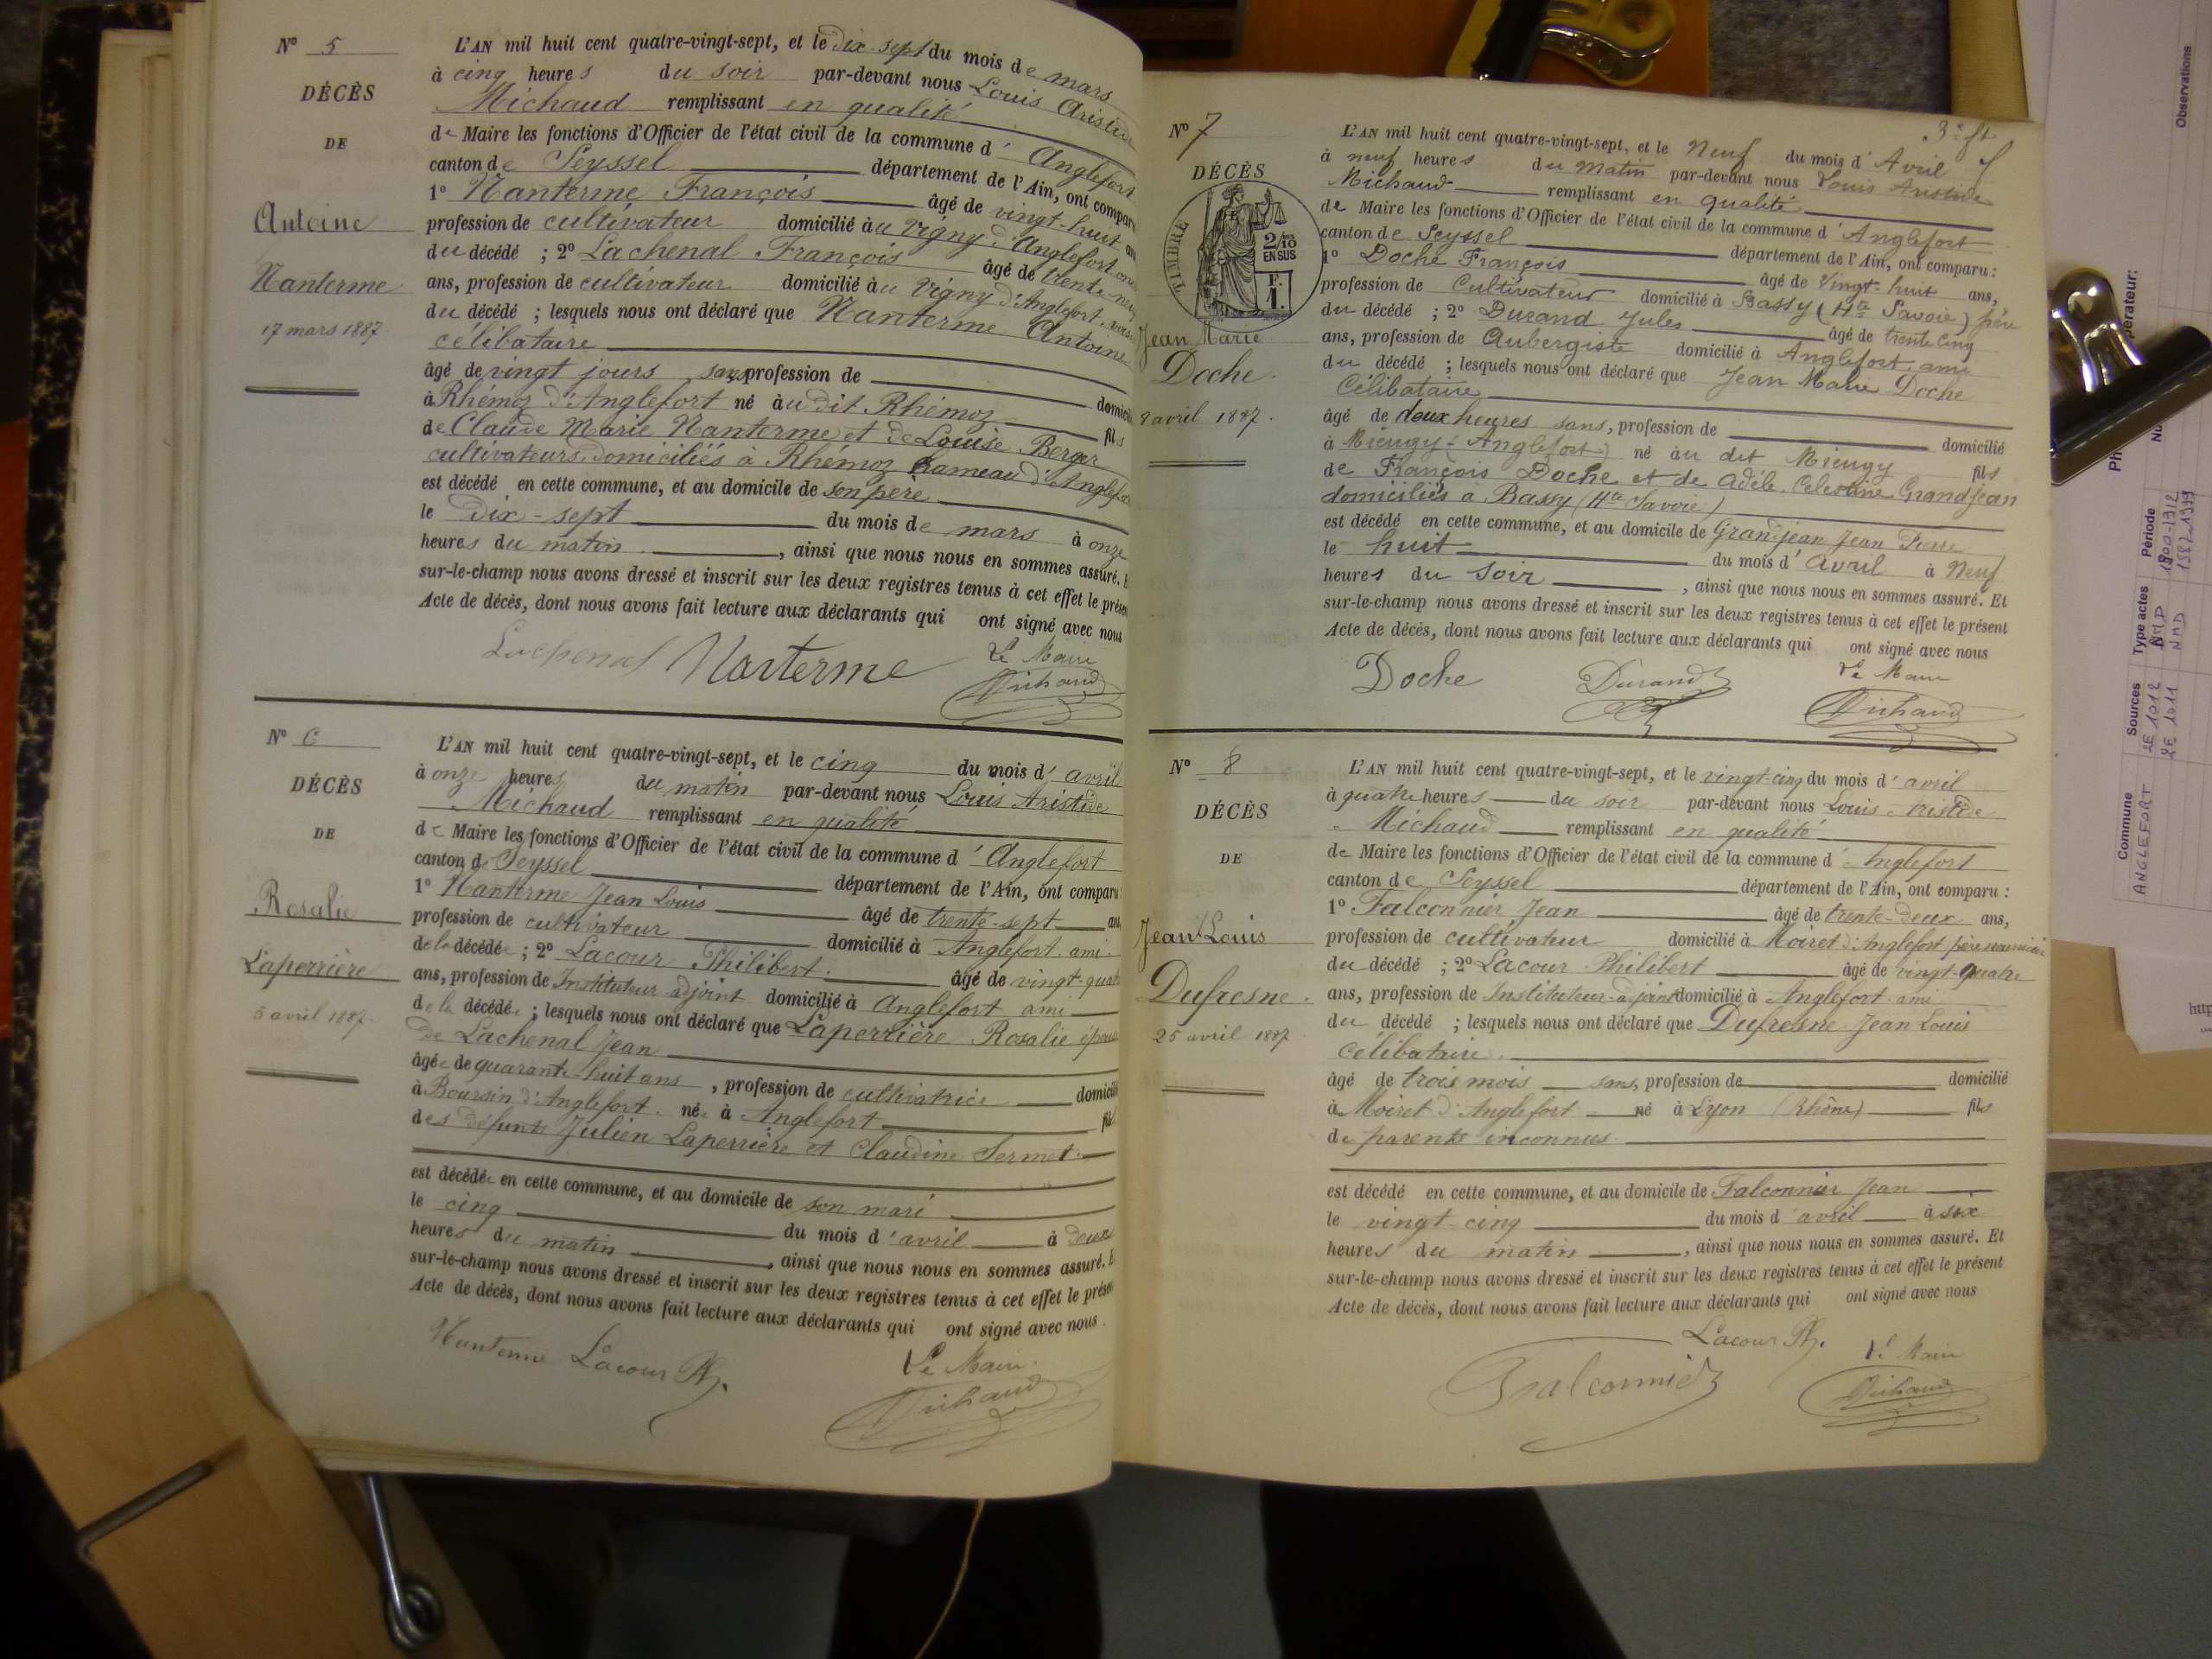 N° 5
DÉCÈS
DE
Antoine
Nanterme
17 mars 1887
L'AN mil huit cent quatre-vingt-sept, et le dix-sept du mois de mars
à cinq heures du soir par-devant nous Louis Aristide
Michaud remplissant en qualité
de Maire les fonctions d'Officier de l'état civil de la commune d'Anglefort
canton de Seyssel département de l'Ain, ont comparu
1° Nanterme François âgé de vingt-huit ans
profession de cultivateur domicilié au Vigny d'Anglefort
du décédé ; 2° Lachenal François âgé de trente-neuf
ans, profession de cultivateur domicilié au Vigny d'Anglefort
du décédé ; lesquels nous ont déclaré que Nanterme Antoine
célibataire
âgé de vingt jours sans profession de domicilié
à Rhémoz d'Anglefort né au dit Rhémoz fils
de Claude Marie Nanterme et de Louise Berger
cultivateurs domiciliés à Rhémoz hameau d'Anglefort
est décédé en cette commune, et au domicile de son père
le dix-sept du mois de mars à onze
heures du matin, ainsi que nous nous en sommes assuré. E
sur-le-champ nous avons dressé et inscrit sur les deux registres tenus à cet effet le présen
Acte de décès, dont nous avons fait lecture aux déclarants qui ont signé avec nous
Lachenal Nanterme Le Maire
Michaud
N° 6
DÉCÈS
DE
Rosalie
Laperrière
5 avril 1887
L'AN mil huit cent quatre-vingt-sept, et le cinq du mois d'avril
à onze heures du matin par-devant nous Louis Aristide
Michaud remplissant en qualité
de Maire les fonctions d'Officier de l'état civil de la commune d'Anglefort
canton de Seyssel département de l'Ain, ont comparu :
1° Nanterme Jean Louis âgé de trente-sept ans
profession de cultivateur domicilié à Anglefort ami
de la décédée ; 2° Lacour Philibert âgé de vingt-quatre
ans, profession de Instituteur-adjoint domicilié à Anglefort ami
de la décédée ; lesquels nous ont déclaré que Laperrière Rosalie épouse
de Lachenal Jean
âgée de quarante-huit ans, profession de cultivatrice domicilié
à Boursin d'Anglefort née à Anglefort fille
des défunts Julien Laperrière et Claudine Sermet
est décédée en cette commune, et au domicile de son mari
le cinq du mois d'avril à deux
heures du matin, ainsi que nous nous en sommes assuré. E
sur-le-champ nous avons dressé et inscrit sur les deux registres tenus à cet effet le présen
Acte de décès, dont nous avons fait lecture aux déclarants qui ont signé avec nous.
Nanterme Lacour Ph. Le Maire
Michaud
3e ft
N° 7
DÉCÈS
TIMBRE
2/10
EN SUS
F.
1.
Jean Marie
Doche.
8 avril 1887.
L'AN mil huit cent quatre-vingt-sept, et le Neuf du mois d'Avril
à neuf heures du Matin par-devant nous Louis Aristide
Michaud remplissant en qualité
de Maire les fonctions d'Officier de l'état civil de la commune d'Anglefort
canton de Seyssel département de l'Ain, ont comparu :
1° Doche François âgé de Vingt-huit ans,
profession de Cultivateur domicilié à Bassy (Hte Savoie) père
du décédé ; 2° Durand Jules âgé de trente cinq
ans, profession de Aubergiste domicilié à Anglefort ami
du décédé ; lesquels nous ont déclaré que Jean Marie Doche
Célibataire
âgé de deux heures sans, profession de domicilié
à Mieugy (Anglefort) né au dit Mieugy fils
de François Doche et de Adèle Célestine Grandjean
domiciliés à Bassy (Hte Savoie)
est décédé en cette commune, et au domicile de Grandjean Jean Pierre
le huit du mois d'Avril à Neuf
heures du Soir, ainsi que nous nous en sommes assuré. Et
sur-le-champ nous avons dressé et inscrit sur les deux registres tenus à cet effet le présent
Acte de décès, dont nous avons fait lecture aux déclarants qui ont signé avec nous
Doche Durand Le Maire
Michaud
N° 8
DÉCÈS
DE
Jean Louis
Dufresne.
25 avril 1887.
L'AN mil huit cent quatre-vingt-sept, et le vingt-cinq du mois d'avril
à quatre heures du soir par-devant nous Louis Aristide
Michaud remplissant en qualité
de Maire les fonctions d'Officier de l'état civil de la commune d'Anglefort
canton de Seyssel département de l'Ain, ont comparu :
1° Falconnier Jean âgé de trente-deux ans,
profession de cultivateur domicilié à Moiret d'Anglefort père nourricier
du décédé ; 2° Lacour Philibert âgé de vingt-quatre
ans, profession de Instituteur-adjoint domicilié à Anglefort ami
du décédé ; lesquels nous ont déclaré que Dufresne Jean Louis
célibataire.
âgé de trois mois sans, profession de domicilié
à Moiret d'Anglefort né à Lyon (Rhône) fils
de parents inconnus
est décédé en cette commune, et au domicile de Falconnier Jean
le vingt-cinq du mois d'avril à six
heures du matin, ainsi que nous nous en sommes assuré. Et
sur-le-champ nous avons dressé et inscrit sur les deux registres tenus à cet effet le présent
Acte de décès, dont nous avons fait lecture aux déclarants qui ont signé avec nous
Lacour Ph. Le Maire
Falconnier Michaud
Observations
érateur:
Commune Sources Type actes Période
ANGLEFORT 2E 1012 NMD
2E 1011 NMD
http